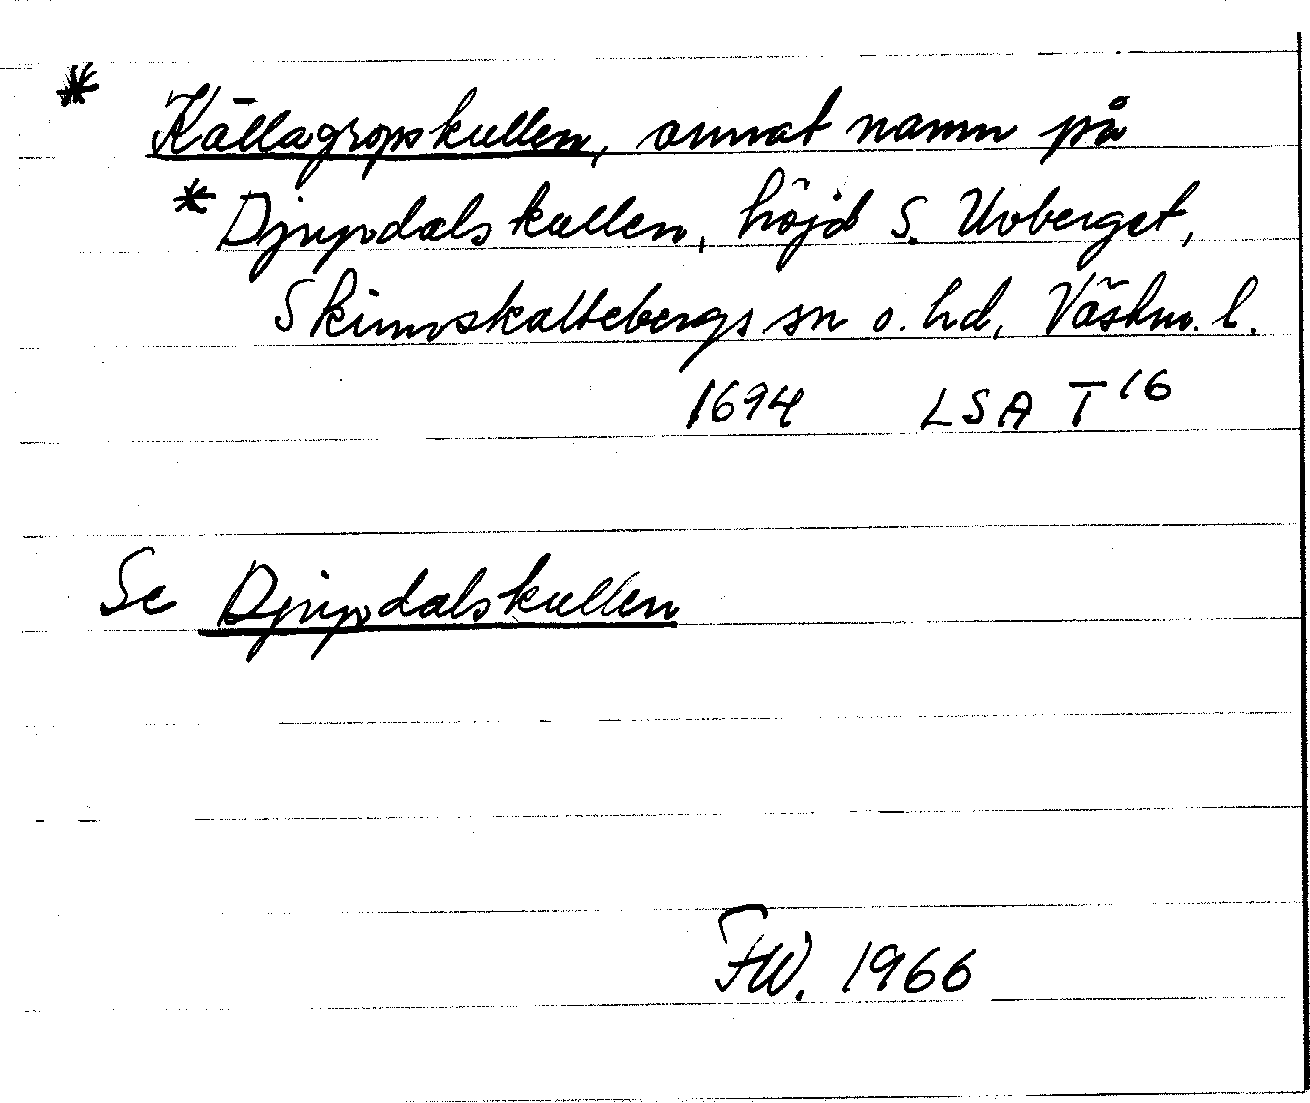 * Källagropskullen, annat namn på
* Djupdalskullen, höjd S. Uvberget,
Skinnskattebergs sn o. hd, Västm. l.
1694 LSA T 16
Se Djupdalskullen
FW. 1966